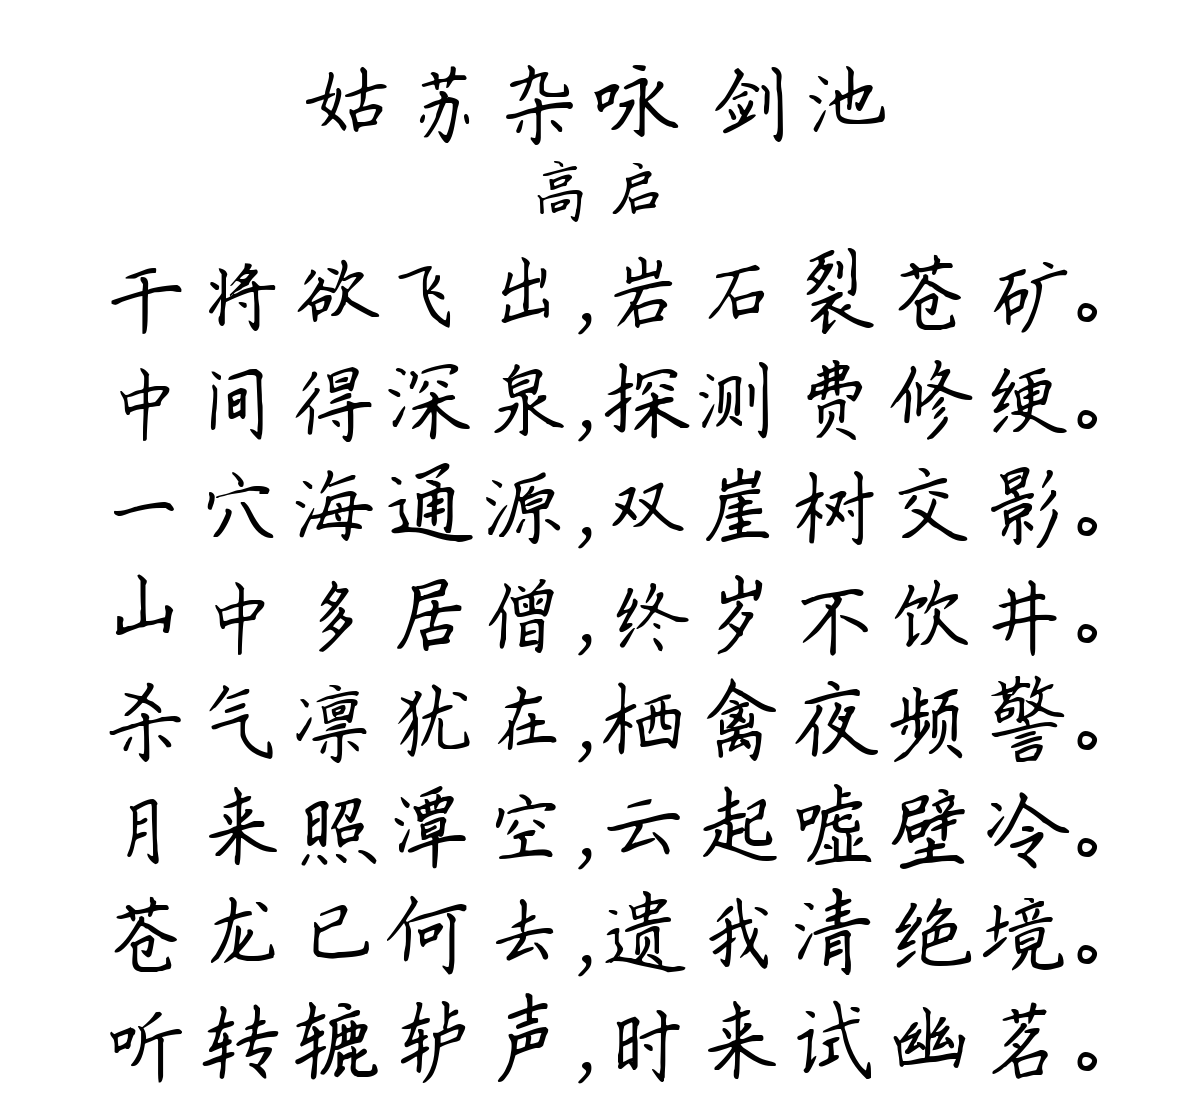 姑苏杂咏 剑池
高启
干将欲飞出,岩石裂苍矿。
中间得深泉,探测费修绠。
一穴海通源,双崖树交影。
山中多居僧,终岁不饮井。
杀气凛犹在,栖禽夜频警。
月来照潭空,云起嘘壁冷。
苍龙已何去,遗我清绝境。
听转辘轳声,时来试幽茗。